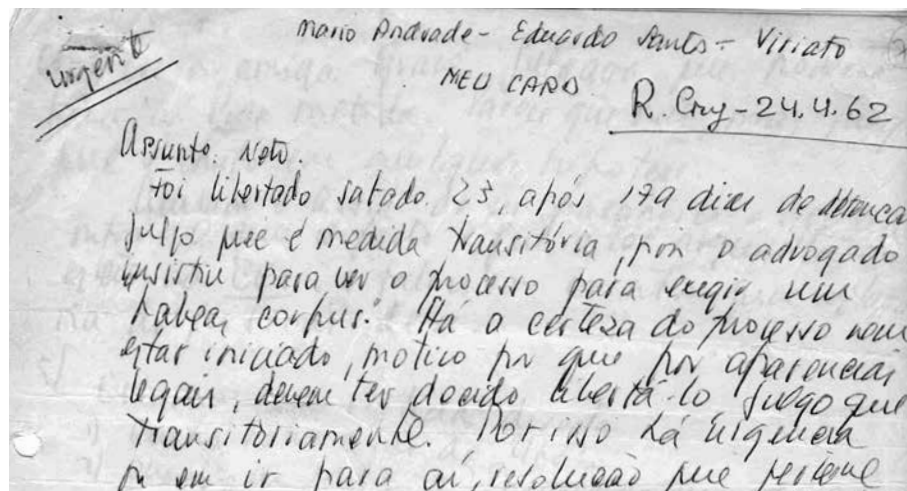 urgente
Mario Andrade - Eduardo Santos - Viriato
MEU CARO
R. Cruz - 24.4.62
Assunto. Neto.
Foi libertado sabado 23, após 179 dias de detenção
julgo que é medida transitória, pois o advogado
insistiu para ver o processo para exigir um
habeas corpus. Há a certeza do processo nem
estar iniciado, motivo por que por aparências
legais, devem ter decido libertá-lo julgo que
transitoriamente. Por isso há urgência
em ir para aí, resolução que